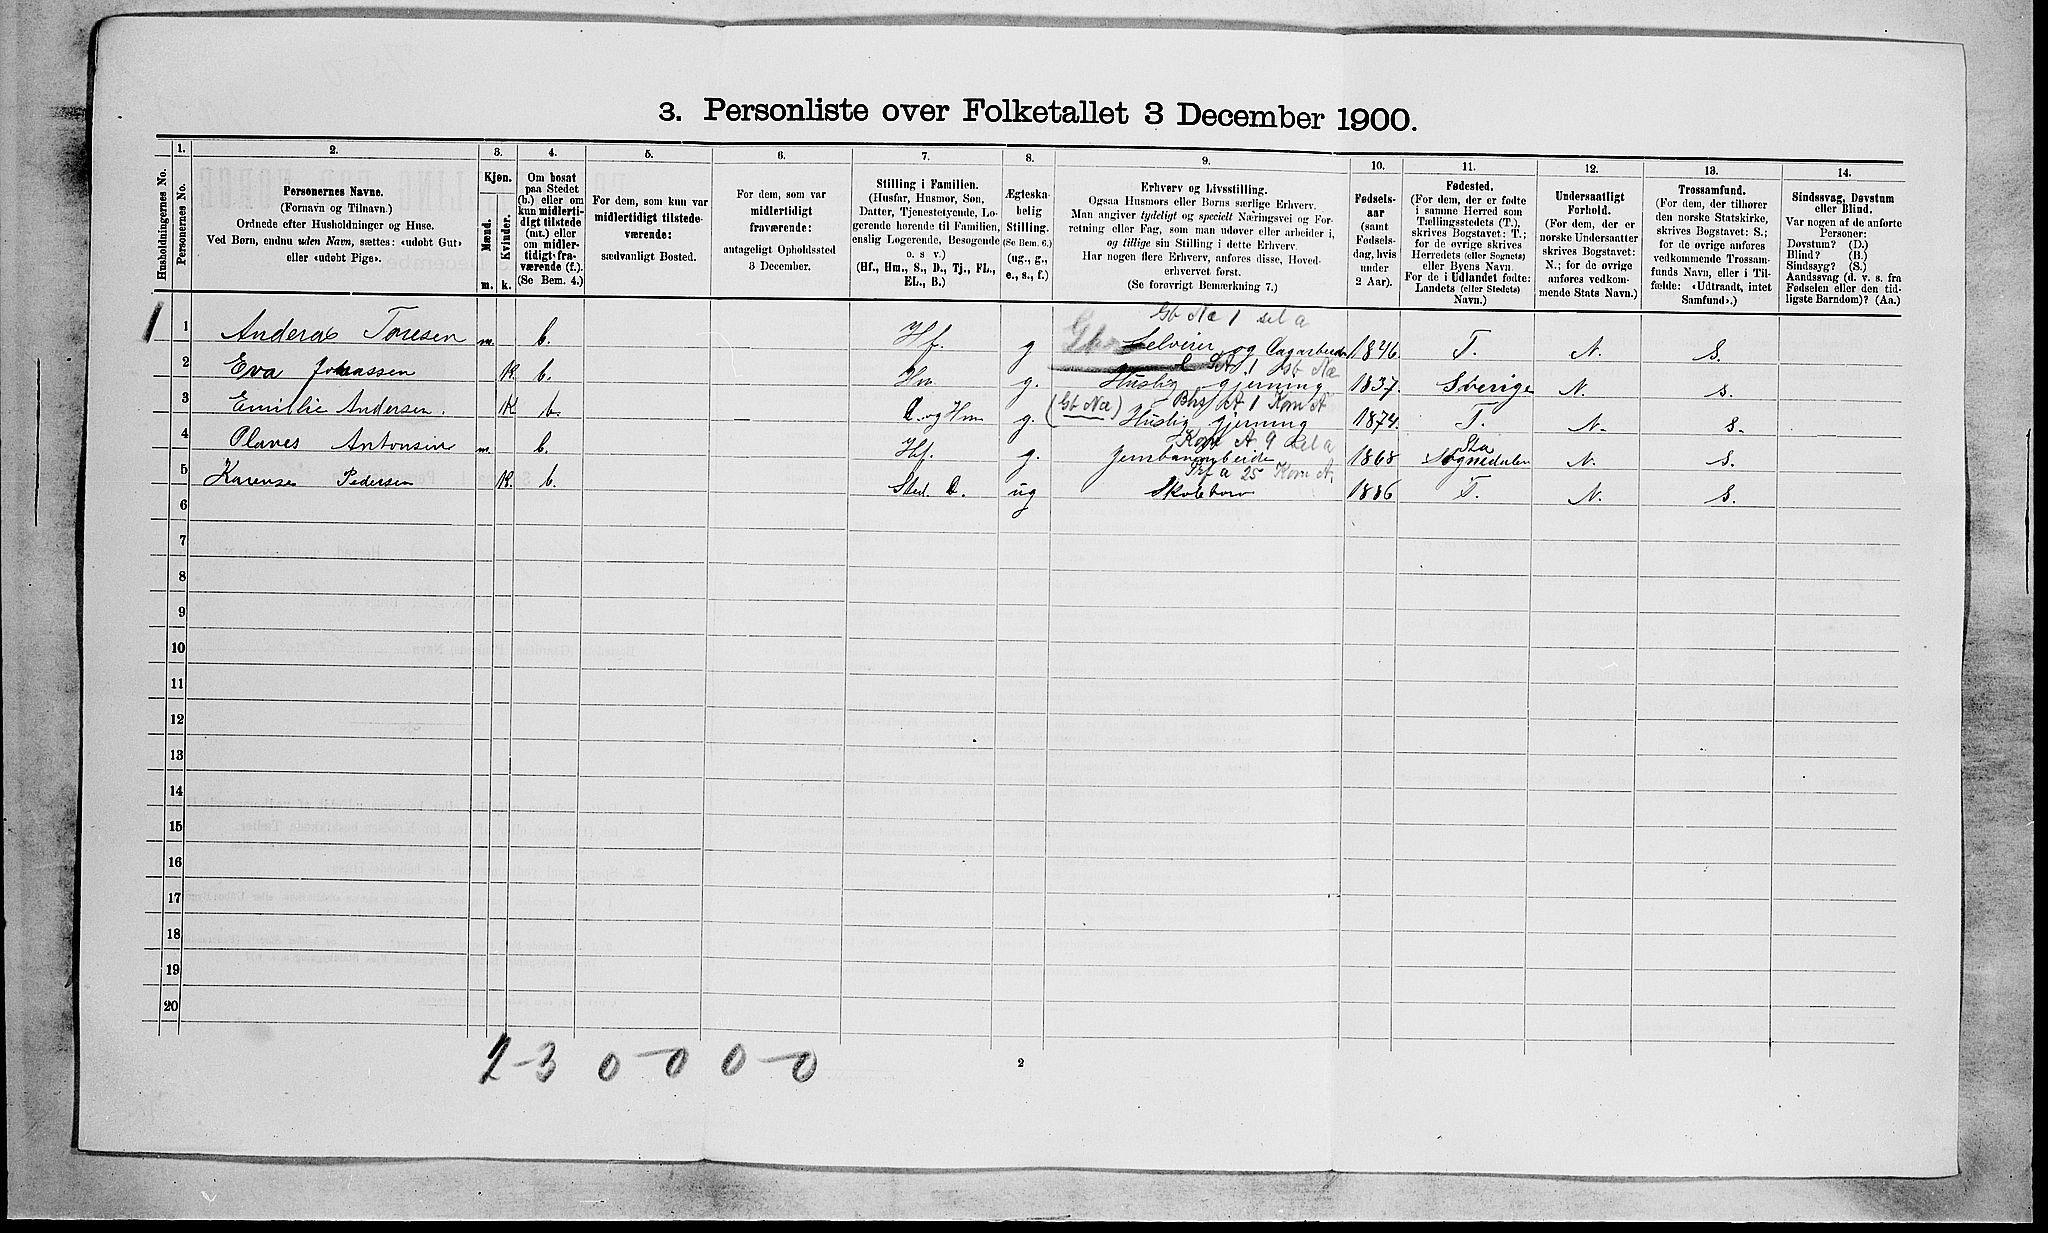 3. Personliste over Folketallet 3 December 1900.
Husholdningernes No.
1. Personernes No.
2. Personernes Navne. (Fornavn og Tilnavn.) Ordnede efter Husholdninger og Huse. Ved Børn, endnu uden Navn, sættes: «udøbt Gut» eller «udøbt Pige».
3. Kjøn. Mænd. m. Kvinder. k.
4. Om bosat paa Stedet (b.) eller om kun midlertidigt tilstede (mt.) eller om midlertidigt fraværende (f.). (Se Bem. 4.)
5. For dem, som kun var midlertidigt tilstedeværende: sædvanligt Bosted.
6. For dem, som var midlertidigt fraværende: antageligt Opholdssted 3 December.
7. Stilling i Familien. (Husfar, Husmor, Søn, Datter, Tjenestetyende, Logerende hørende til Familien, enslig Logerende, Besøgende o. s v.) (Hf., Hm., S., D., Tj., FL., EL., B.)
8. Ægteskabelig Stilling. (Se Bem. 6.) (ug., g., e., s., f.)
9. Erhverv og Livsstilling. Ogsaa Husmors eller Børns særlige Erhverv. Man angiver tydeligt og specielt Næringsvei og Forretning eller Fag, som man udøver eller arbeider i, og tillige sin Stilling i dette Erhverv. Har nogen flere Erhverv, anføres disse, Hovederhvervet først. (Se forøvrigt Bemærkning 7.)
10. Fødselsaar (samt Fødselsdag, hvis under 2 Aar).
11. Fødested. (For dem, der er fødte i samme Herred som Tællingsstedets (T.), skrives Bogstavet: T.; for de øvrige skrives Herredets (eller Sognets) eller Byens Navn. For de i Udlandet fødte: Landets (eller Stedets) Navn.)
12. Undersaatligt Forhold. (For dem, der er norske Undersaatter skrives Bogstavet: N.; for de øvrige anføres vedkommende Stats Navn.)
13. Trossamfund. (For dem, der tilhører den norske Statskirke, skrives Bogstavet: S.; for de øvrige anføres vedkommende Trossamfunds Navn, eller i Tilfælde: «Udtraadt, intet Samfund».)
14. Sindssvag, Døvstum eller Blind. Var nogen af de anførte Personer: Døvstum? (D.) Blind? (B.) Sindssyg? (S.) Aandssvag (d. v. s. fra Fødselen eller den tidligste Barndom)? (Aa.)
Gb Næ 1 sel a
1 1 Anderas Toresen m. b. Hf. g Selveier og Dagarbeide 1846 T. N. S.
2 Eva Johassen K. b. Hm. g. Huslig gjerning 1837 Sverige N. S.
3 Emillie Andersen. K b. D. og Hm g. (Gb Næ) Huslig gjerning 1874 T. N. S.
Kom A 9 sel a
4 Plaves Antonsen m. b. Hf. g. Jernbanearbeide 1868 Sognedalen N. S.
25 Kom A.
5 Karense Pedersen K. b. Sted. D. ug Skolebarn 1886 T. N. S.
6
7
8
9
10
11
12
13
14
15
16
17
18
19
20
2-3 0-0 0-0
2